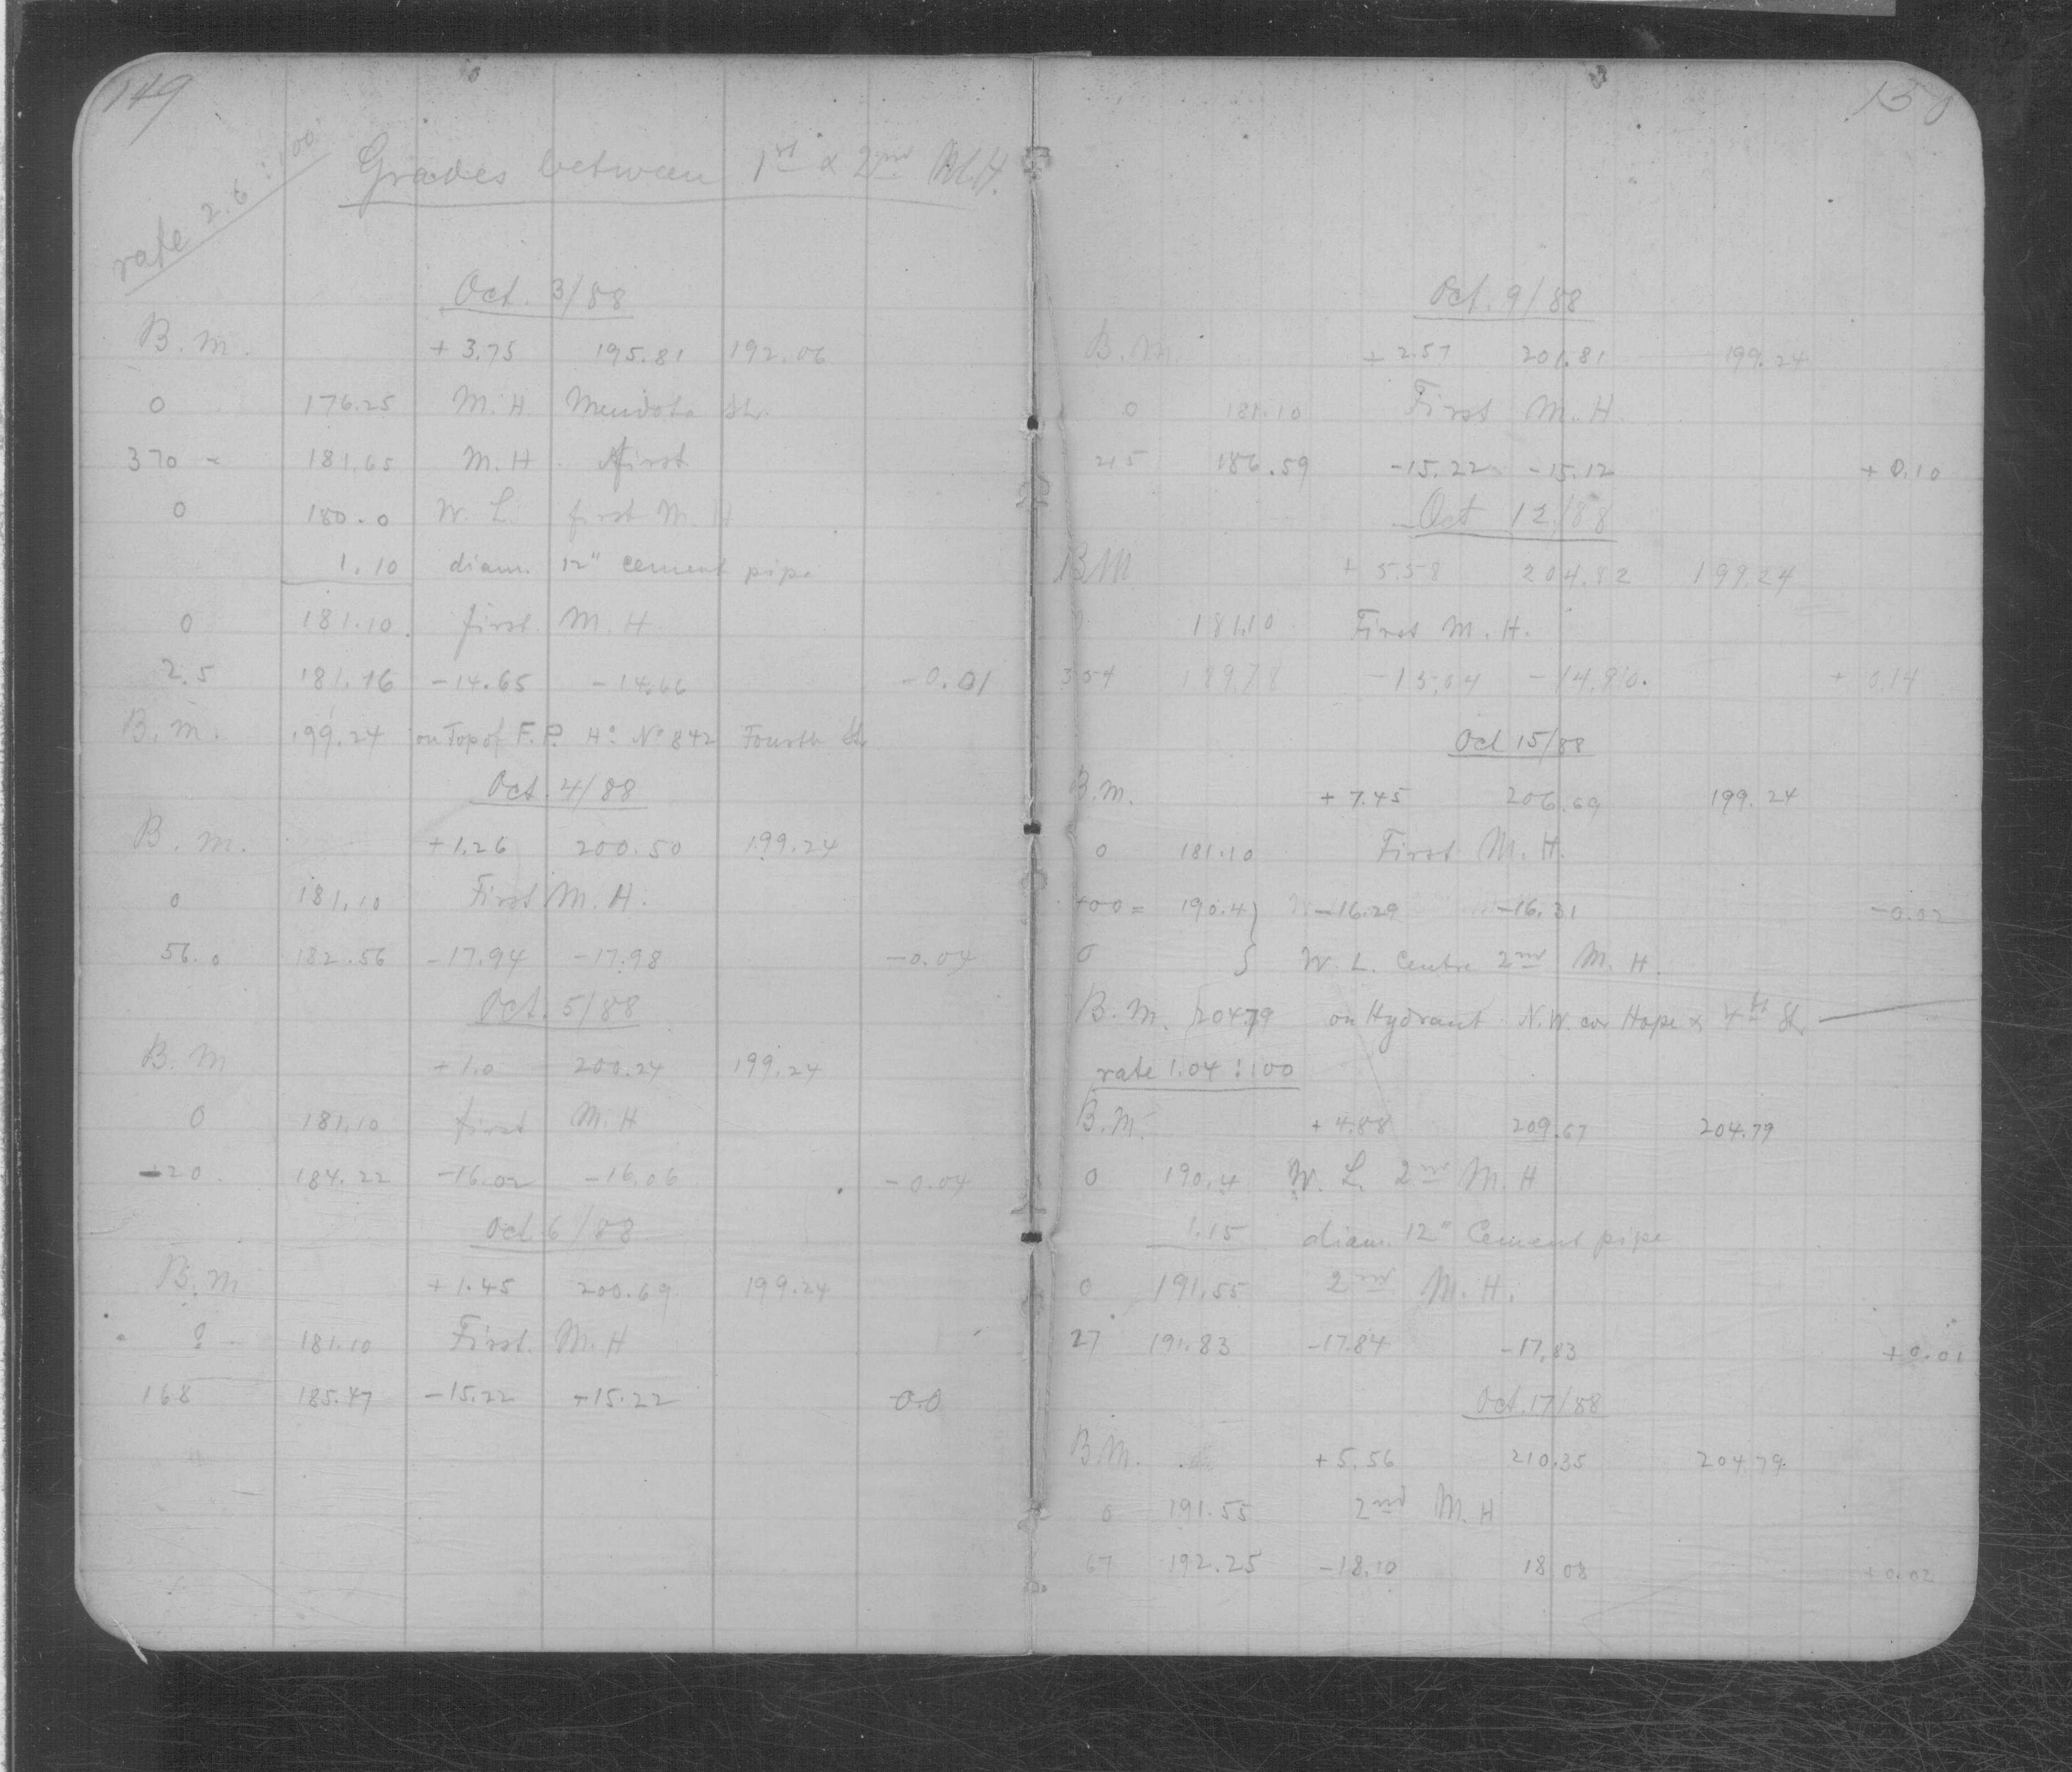 149
rate 2.6 : 100
Grades between 1st & 2nd M.H.
Oct. 3/88
B.M. + 3.75 195.81 192.06
0 176.25 M.H. Mendota Str.
370 - 181.65 M.H. first
0 180.0 W.L. first M.H
1.10 diam. 12" cement pipe
0 181.10 first M.H.
2.5 181.16 -14.65 -14.66 -0.01
B.M. 199.24 on Top of F.P. Ho. No 842 Fourth Str
Oct. 4/88
B.M. +1.26 200.50 199.24
0 181.10 First M.H.
56.0 182.56 -17.94 -17.98 -0.04
Oct. 5/88
B.M +1.0 200.24 199.24
0 181.10 first M.H
120 184.22 -16.02 -16.06 -0.04
Oct. 6/88
B.M +1.45 200.69 199.24
0 181.10 First M.H
168 185.47 -15.22 -15.22 0.0
150
Oct. 9/88
B.M. + 2.57 201.81 199.24
0 181.10 First M.H.
215 186.59 -15.22 -15.12 + 0.10
Oct 12/88
BM + 5.58 204.82 199.24
0 181.10 First M.H.
334 189.78 -15.04 -14.90. + 0.14
Oct 15/88
B.M. + 7.45 206.69 199.24
0 181.10 First M.H.
400= 190.4 -16.29 -16.31 -0.02
0 W.L. Centre 2nd M.H.
B.M. 204.79 on Hydrant N.W. cor Hope & 4th Str
rate 1.04 : 100
B.M. + 4.88 209.67 204.79
0 190.4 W.L. 2nd M.H
1.15 diam. 12" Cement pipe
0 191.55 2nd M.H.
27 191.83 -17.84 -17.83 +0.01
Oct. 17/88
B.M. +5.56 210.35 204.79
0 191.55 2nd M.H
67 192.25 -18.10 18.08 +0.02